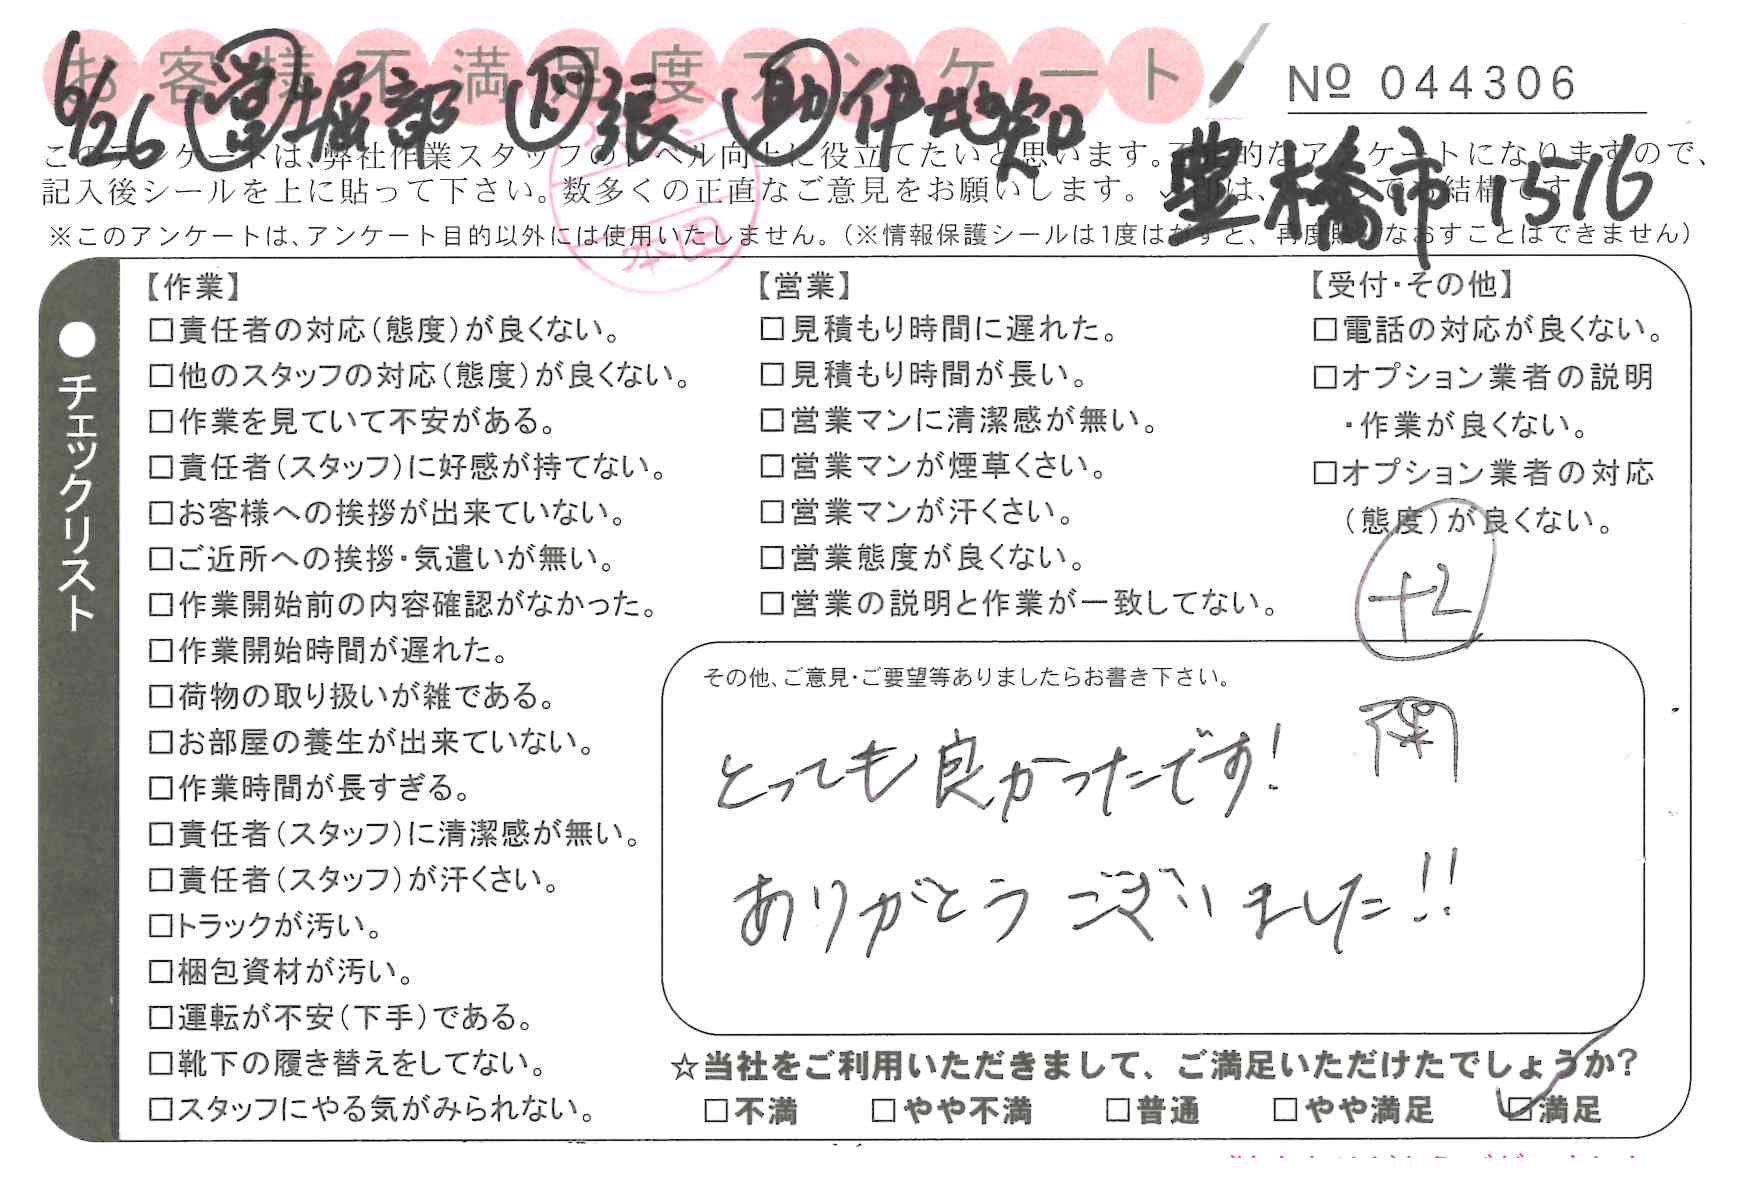 お客様不満足度アンケート
№ 044306
6/26 営 堀部 印 張 助 伊地知
豊橋市 1576
このアンケートは、弊社作業スタッフのレベル向上に役立てたいと思います。
記入後シールを上に貼って下さい。数多くの正直なご意見をお願いします。
※このアンケートは、アンケート目的以外には使用いたしません。（※情報保護シールは1度はがすと、再度貼りなおすことはできません）
●チェックリスト
【作業】
□責任者の対応（態度）が良くない。
□他のスタッフの対応（態度）が良くない。
□作業を見ていて不安がある。
□責任者（スタッフ）に好感が持てない。
□お客様への挨拶が出来ていない。
□ご近所への挨拶・気遣いが無い。
□作業開始前の内容確認がなかった。
□作業開始時間が遅れた。
□荷物の取り扱いが雑である。
□お部屋の養生が出来ていない。
□作業時間が長すぎる。
□責任者（スタッフ）に清潔感が無い。
□責任者（スタッフ）が汗くさい。
□トラックが汚い。
□梱包資材が汚い。
□運転が不安（下手）である。
□靴下の履き替えをしてない。
□スタッフにやる気がみられない。
【営業】
□見積もり時間に遅れた。
□見積もり時間が長い。
□営業マンに清潔感が無い。
□営業マンが煙草くさい。
□営業マンが汗くさい。
□営業態度が良くない。
□営業の説明と作業が一致してない。
【受付・その他】
□電話の対応が良くない。
□オプション業者の説明
・作業が良くない。
□オプション業者の対応
（態度）が良くない。
+2
その他、ご意見・ご要望等ありましたらお書き下さい。
とっても良かったです!
ありがとうございました!!
☆当社をご利用いただきまして、ご満足いただけたでしょうか?
□不満 □やや不満 □普通 □やや満足 ☑満足